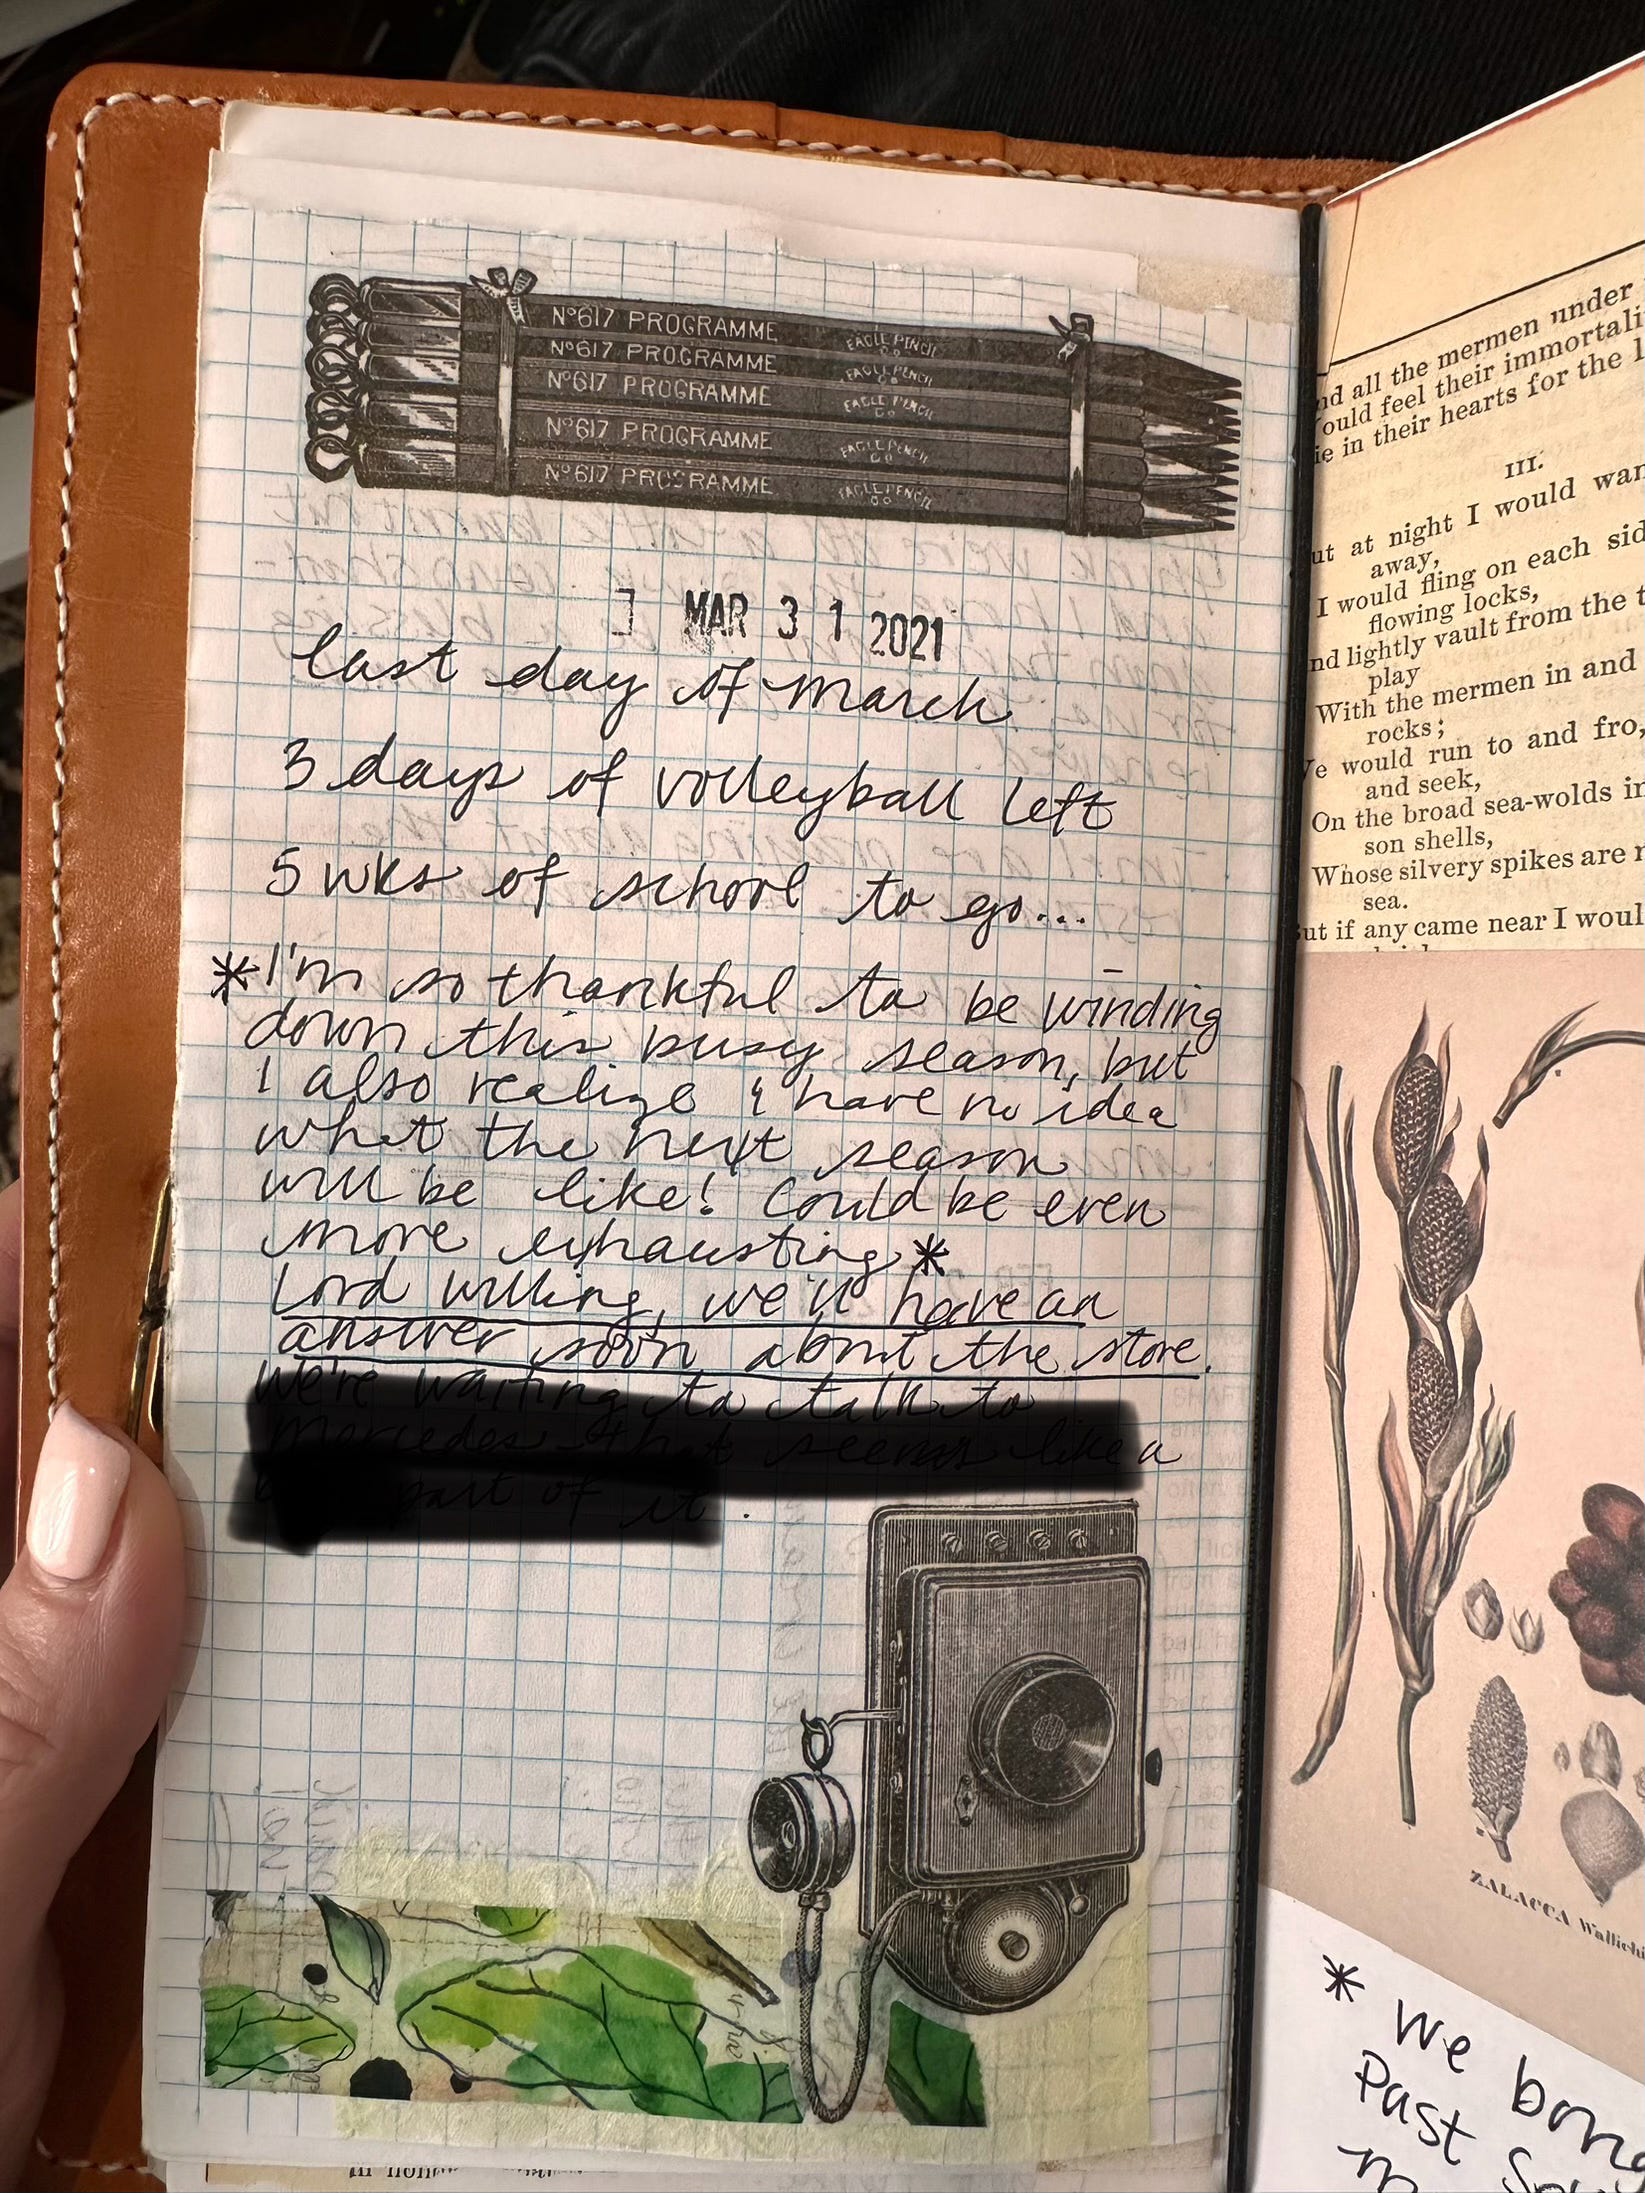 Nº617 PROGRAMME EAGLE PENCIL CO
Nº617 PROGRAMME EAGLE PENCIL CO
Nº617 PROGRAMME EAGLE PENCIL CO
Nº617 PROGRAMME EAGLE PENCIL CO
Nº617 PROGRAMME EAGLE PENCIL CO
MAR 31 2021
last day of march
3 days of volleyball left
5 wks of school to go...
*I'm so thankful to be winding
down this busy season, but
I also realize I have no idea
what the next season
will be like! Could be even
more exhausting*
Lord willing, we'll have an
answer soon about the store.
We're waiting to talk to
all the mermen under
feel their immortali
in their hearts for the
III.
at night I would wan
away,
I would fling on each sid
flowing locks,
lightly vault from the
play
With the mermen in and
rocks;
would run to and fro,
and seek,
On the broad sea-wolds in
son shells,
Whose silvery spikes are
sea.
But if any came near I woul
ZALACCA Wallichi
* We
Past